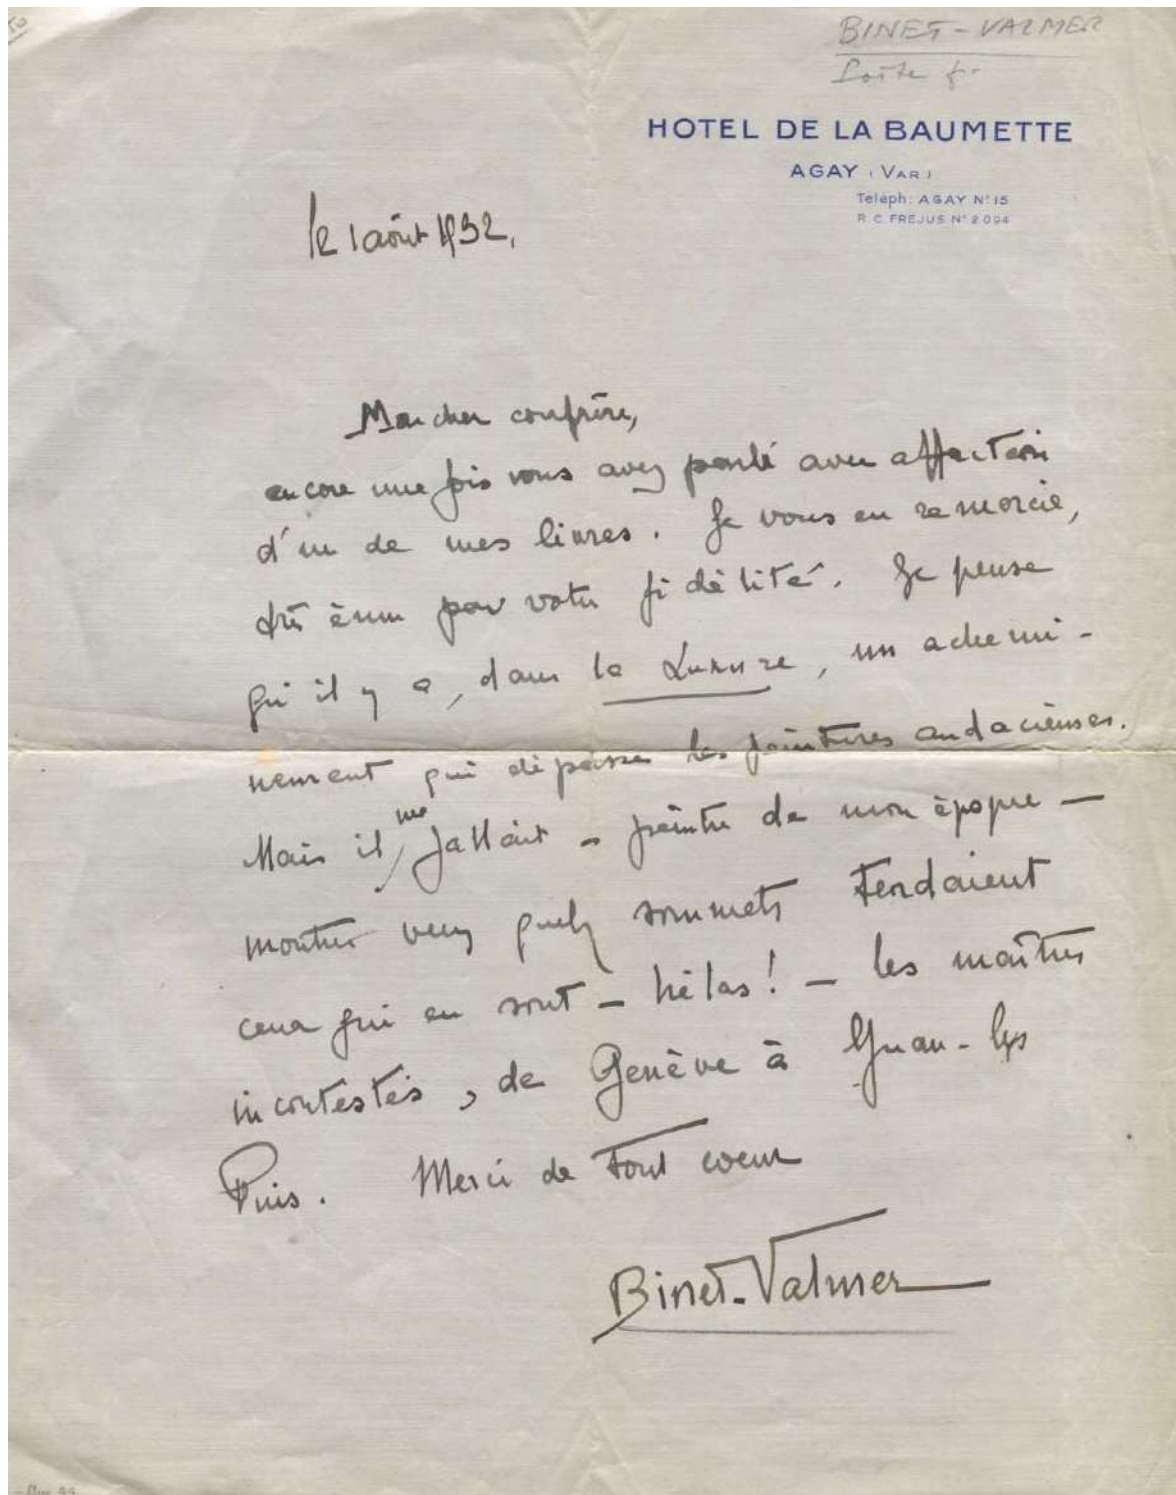 BINET-VALMER
HOTEL DE LA BAUMETTE
AGAY (VAR)
Téléph: AGAY N° 15
R.C. FREJUS N° 2.094
le 1 août 1932.
Mon cher confrère,
encore une fois vous avez parlé avec affection
d'un de mes livres. Je vous en remercie,
très ému par votre fidélité. Je pense
qu'il y a, dans la Luxure, un achemi-
nement qui dépasse les peintures audacieuses.
Mais il me fallait - peintre de mon époque -
montrer vers quels sommets tendaient
ceux qui en sont - hélas! - les maîtres
incontestés, de Genève à Juan-les
Pins. Merci de tout coeur
Binet-Valmer